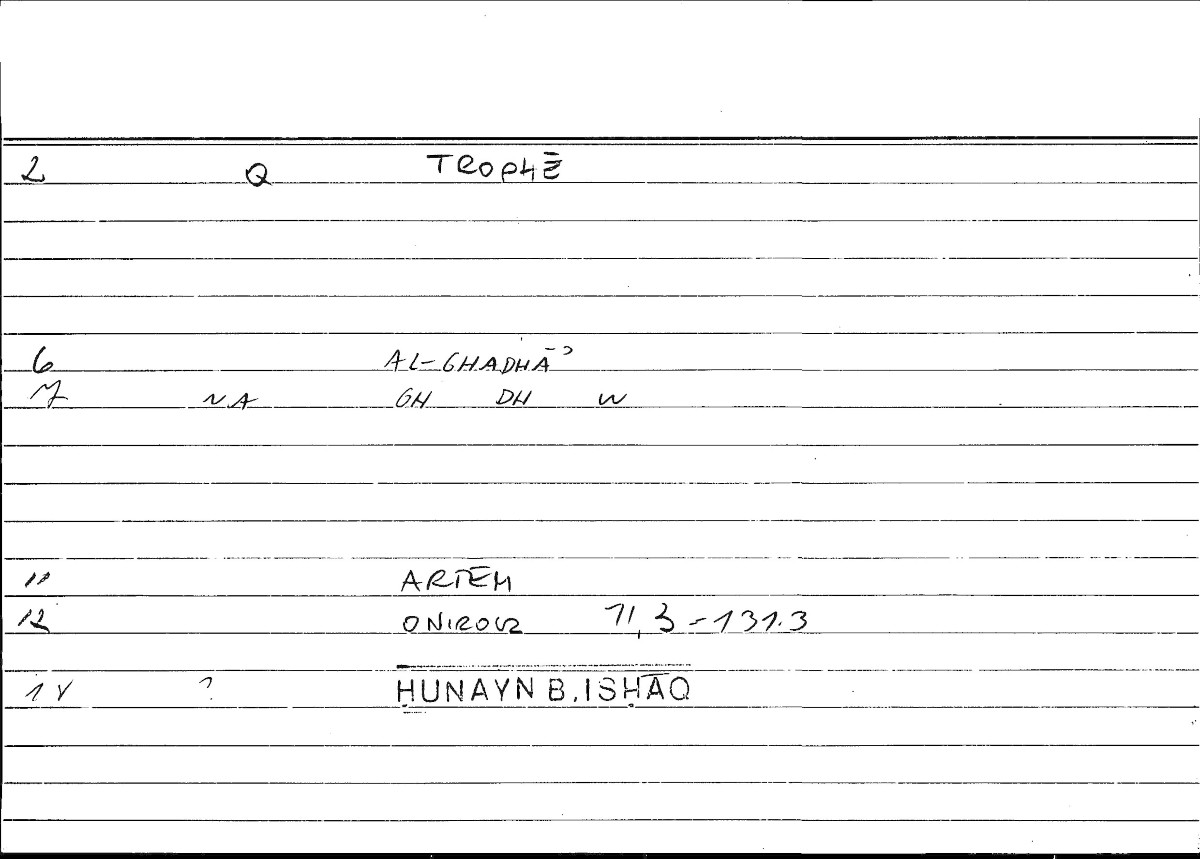 2 Q TROPHĒ
6 AL-GHADHĀʾ
7 NA GH DH W
11 ARTEM
12 ONIROCR 71,3-131.3
14 ? ḤUNAYN B. ISḤĀQ